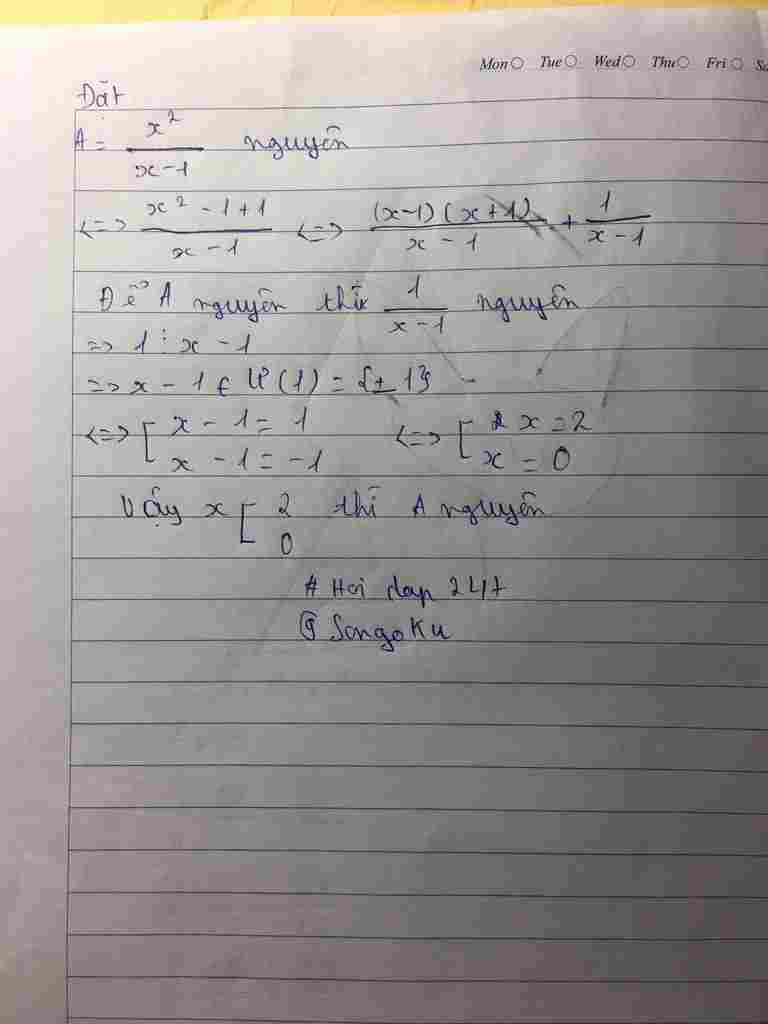 Mon Tue Wed Thu Fri Sa
Đặt
A = x²/(x-1) nguyên
<=> (x² - 1 + 1)/(x - 1) <=> (x-1)(x+1)/(x - 1) + 1/(x - 1)
Để A nguyên thì 1/(x-1) nguyên
=> 1 ⋮ x - 1
=> x - 1 ∈ Ư(1) = {± 1}
<=> [ x - 1 = 1 <=> [ x = 2
x - 1 = -1 x = 0
Vậy x [ 2 thì A nguyên
0
# Hoi dap 247
@ SongoKu